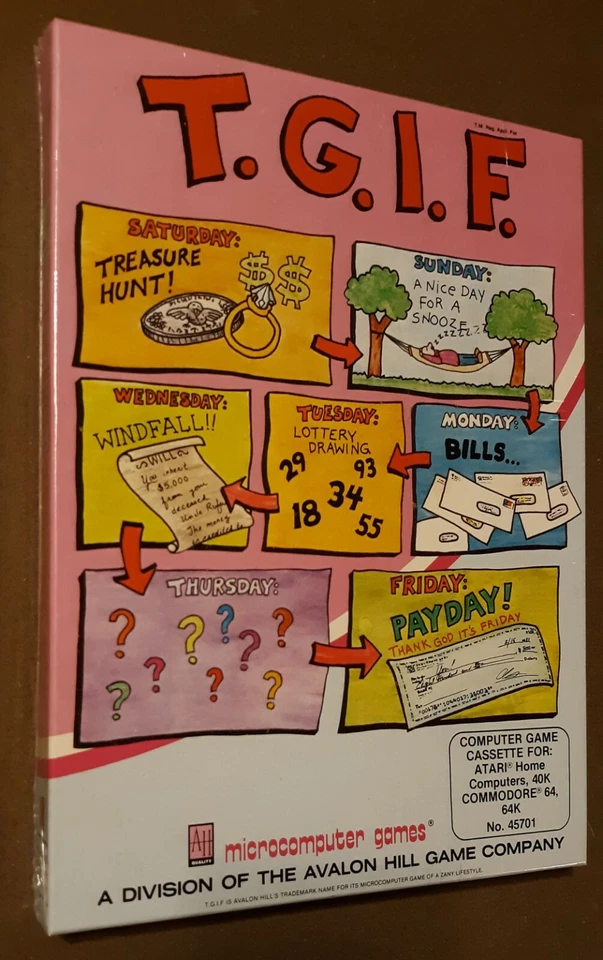 T.G.I.F.
SATURDAY:
TREASURE
HUNT!
$$
SUNDAY:
A NICE DAY
FOR A
SNOOZE
MONDAY:
BILLS...
TUESDAY:
LOTTERY
DRAWING
29 93
34
18 55
WEDNESDAY:
WINDFALL!!
WILL
You inherit
$5,000
from your
deceased
Uncle
The money
THURSDAY:
? ? ? ? ? ? ? ? ?
FRIDAY:
PAYDAY!
THANK GOD IT'S FRIDAY
COMPUTER GAME
CASSETTE FOR:
ATARI® Home
Computers, 40K
COMMODORE® 64,
64K
No. 45701
AH
QUALITY
microcomputer games®
A DIVISION OF THE AVALON HILL GAME COMPANY
T.G.I.F IS AVALON HILL'S TRADEMARK NAME FOR ITS MICROCOMPUTER GAME OF A ZANY LIFESTYLE.